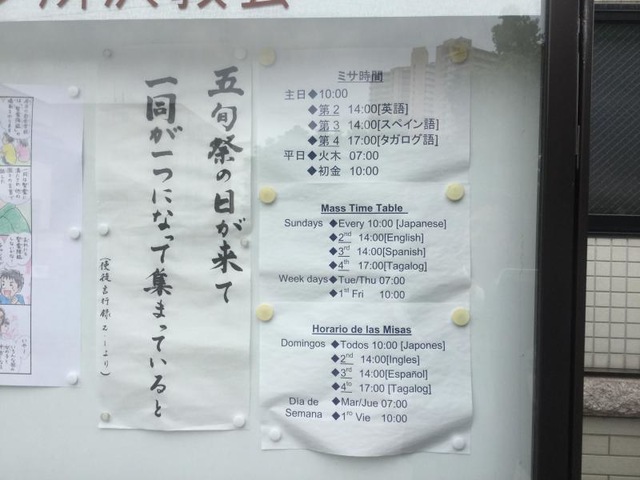 所沢教会
五旬祭の日が来て
一同が一つになって集まっていると
(使徒言行録2-1より)
ミサ時間
主日◆10:00
◆第2 14:00[英語]
◆第3 14:00[スペイン語]
◆第4 17:00[タガログ語]
平日◆火木 07:00
◆初金 10:00
Mass Time Table
Sundays ◆Every 10:00 [Japanese]
◆2nd 14:00[English]
◆3rd 14:00[Spanish]
◆4th 17:00[Tagalog]
Week days ◆Tue/Thu 07:00
◆1st Fri 10:00
Horario de las Misas
Domingos ◆Todos 10:00 [Japones]
◆2nd 14:00[Ingles]
◆3rd 14:00[Español]
◆4to 17:00 [Tagalog]
Dia de ◆Mar/Jue 07:00
Semana ◆1ro Vie 10:00